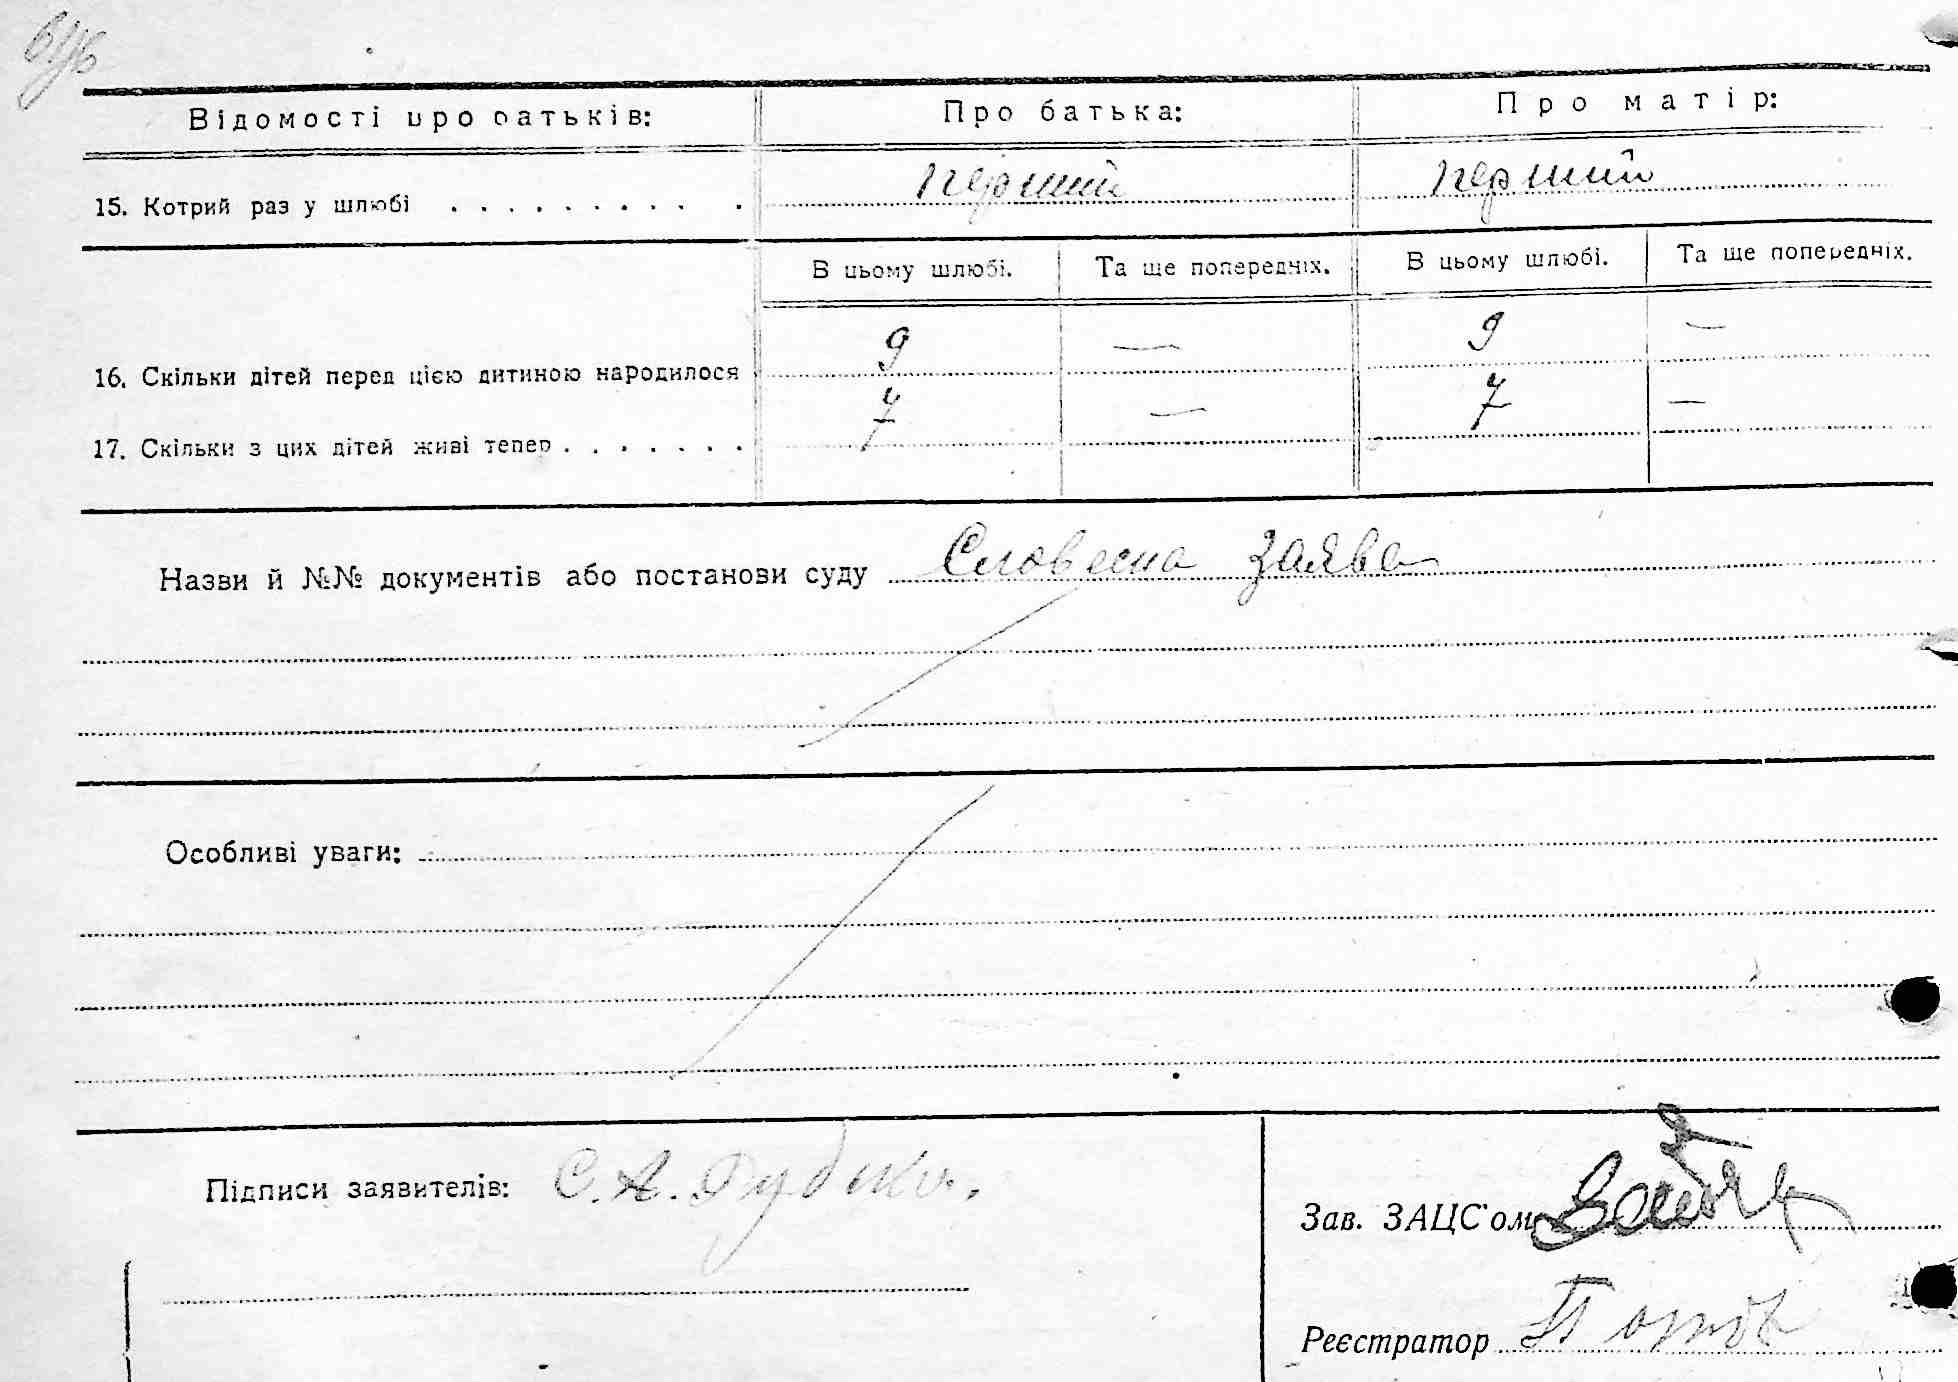 Відомості про батьків: Про батька: Про матір:
15. Котрий раз у шлюбі . . . . . . . . . . перший перший
В цьому шлюбі. Та ще попередніх. В цьому шлюбі. Та ще попередніх.
16. Скільки дітей перед цією дитиною народилося 9 — 9 —
17. Скільки з цих дітей живі тепер . . . . . . . 7 — 7 —
Назви й №№ документів або постанови суду Словесна заява
Особливі уваги:
Підписи заявителів: С. А.
Зав. ЗАЦС'ом
Реєстратор